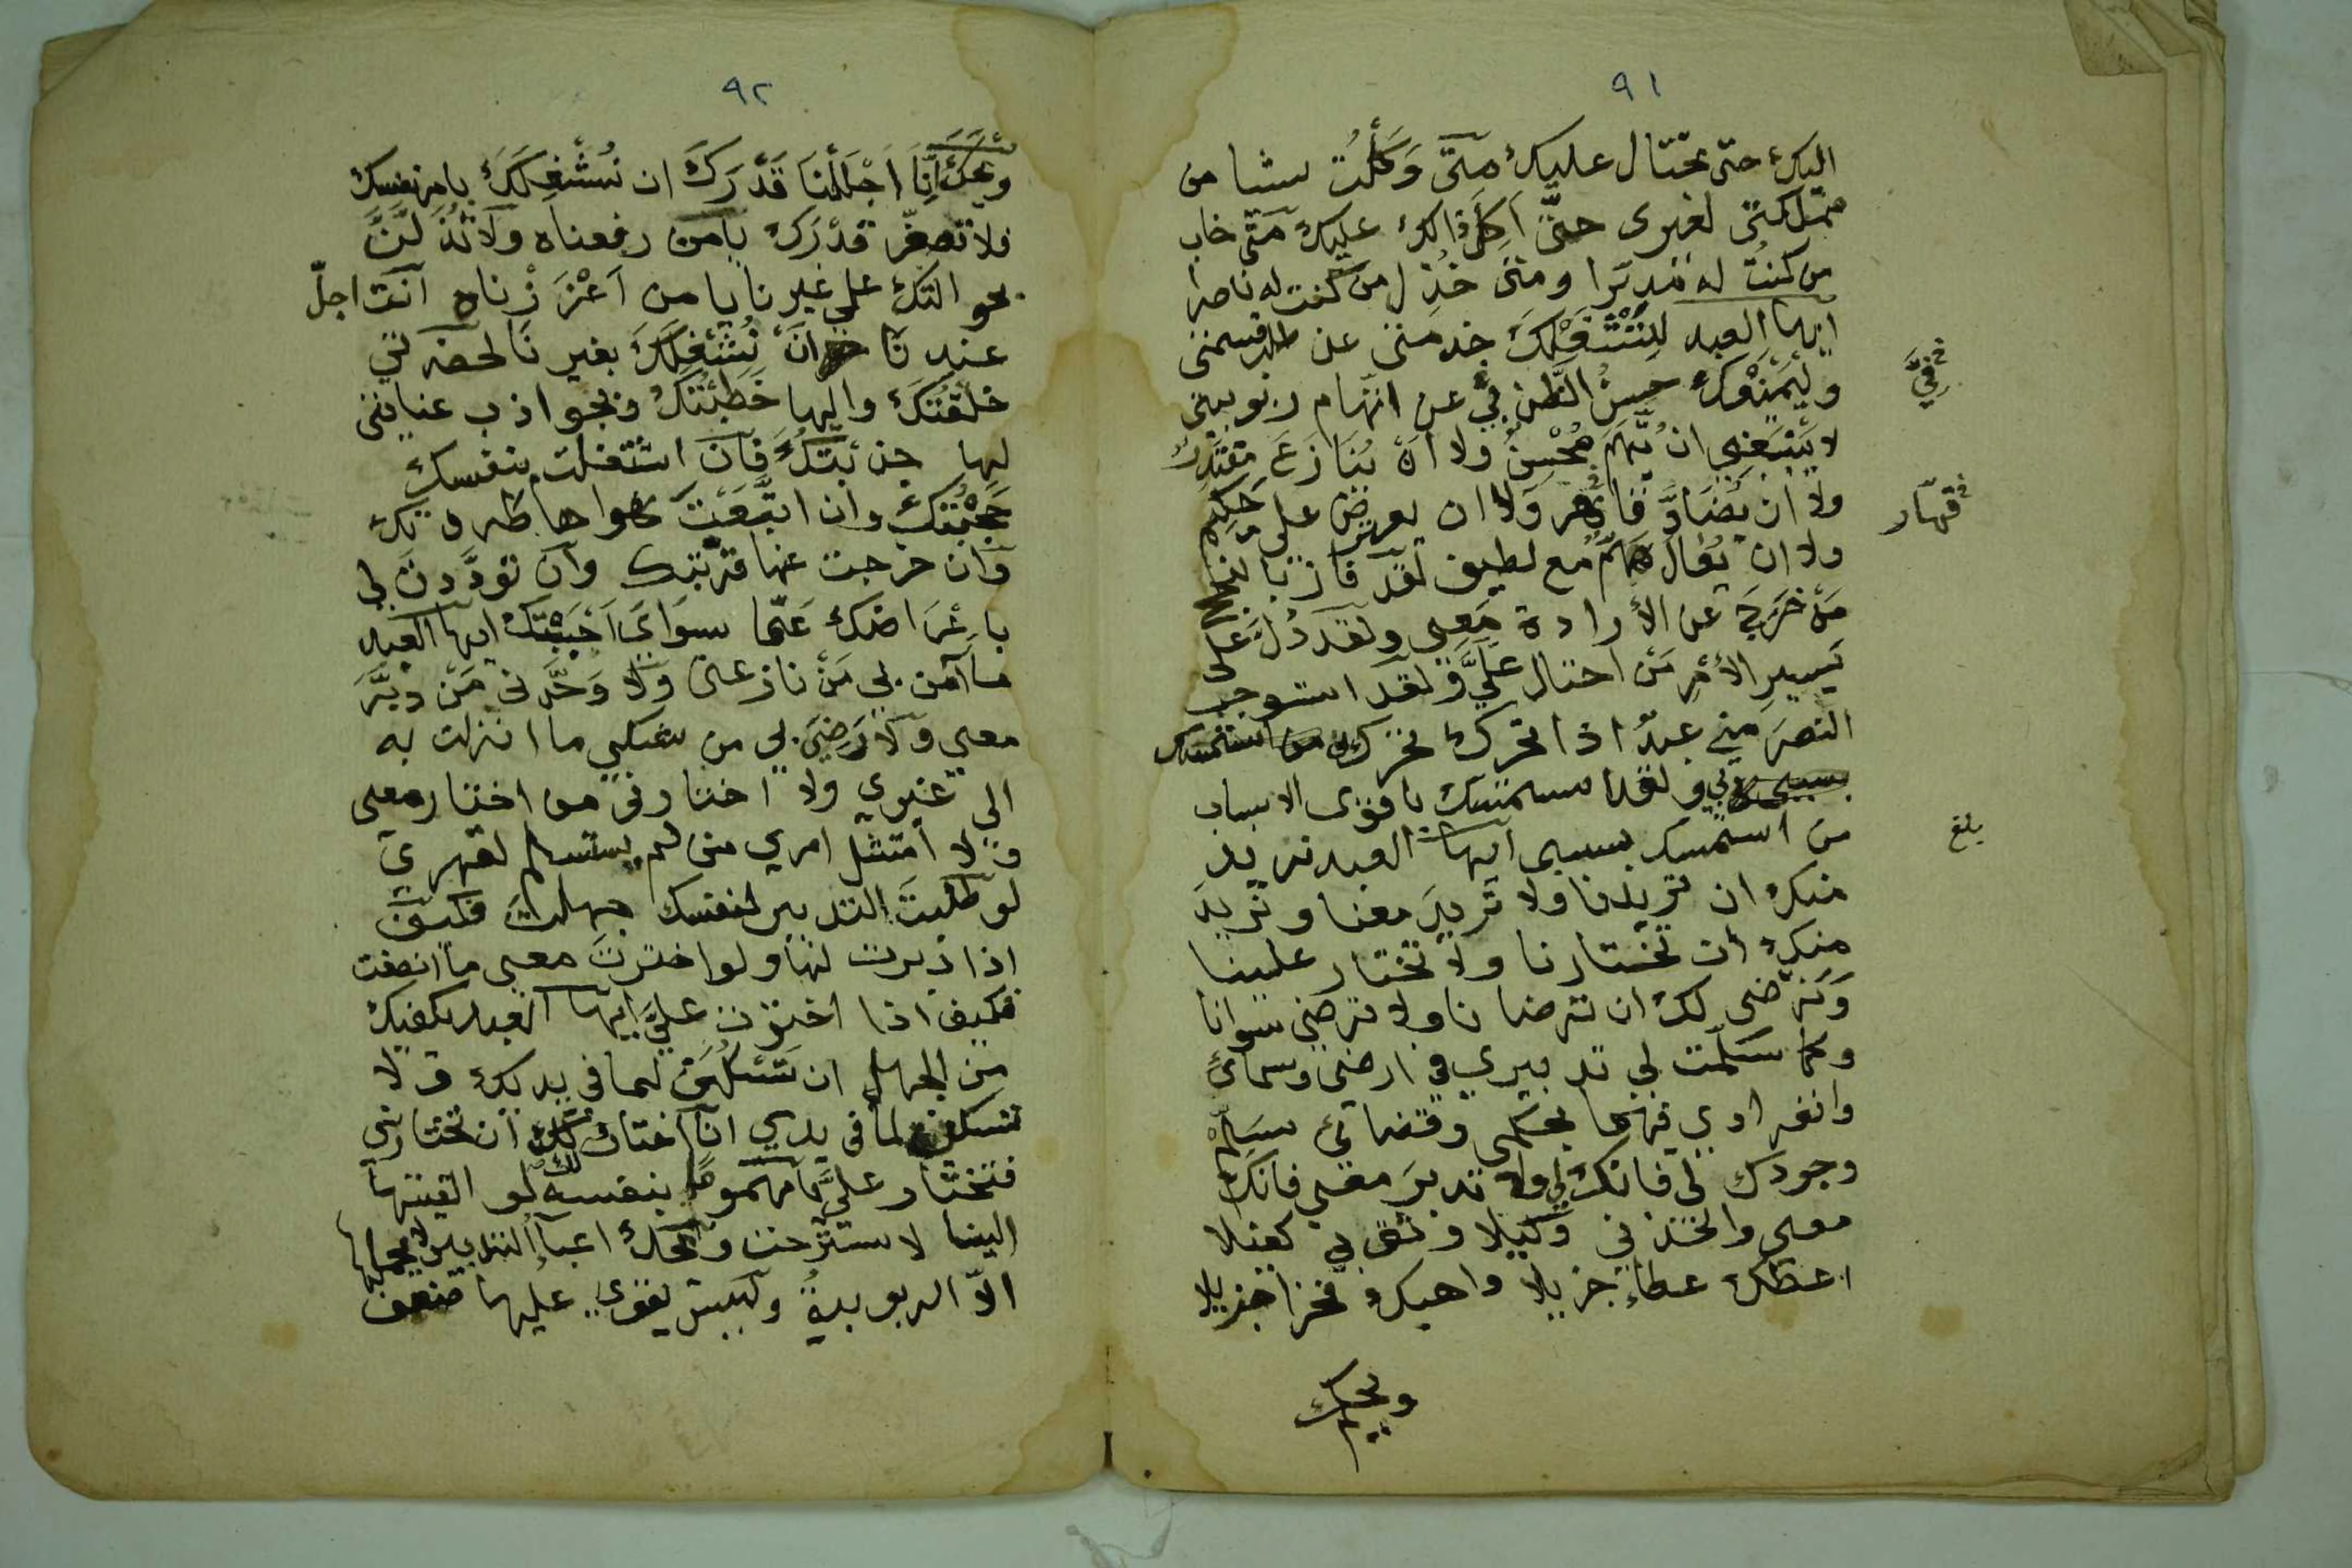 ٩١
اليك حتى تحتال عليك متى وَكَلْتُ شيا من
مملكتى لغيرى حتّى اَكِلَ ذالك عليك مَتى خاب
من كنتُ له مدبّرا ومتى خُذِل من كنت له ناصرا
ايها العبد لِتَشْغَلْكَ خدمتى عن طلب قسمتى
وليَمْنَعْكَ حسنُ الظَّن بِي عن اتهام ربوبيتى
فِيَّ
لا يَنْبَغِى ان يُتَّهَمَ مُحْسِنٌ ولا اَنْ يُنَازَعَ مقتدرٌ
ولا ان يُضَادَّ قاهر وَلا ان يعرض على حكيم
قهّار
ولا ان يُعَالَ هَمٌّ مع لطيف لقد فاز بالنجا
مَنْ خَرَجَ عن الأرادة مَعِى ولقد دُلَّ على
يَسِيرِ الأمْرِ مَنْ احتال عَلَيَّ ولقد استوجب
النصرَ مني عبدٌ اذا تحرك تحرك
بي ولقد استمسك باقوى الاسباب
من استمسك بسببى ايها العبد نريد
بلغ
منك ان تريدنا ولا تُريدَ معنا ونريد
منك ان تختارنا ولا تختار علينا
وَنرضى لك ان ترضانا ولا ترضى سوانا
وكما سَلّمت لى تدبيري فى ارضى وسمائى
وانفرادي فيهما بحكمى وقضائى سَلِّمْ
وجودك لى فانك لي ولا تدبرَ معى فانك
معى واتخذنى وكيلا وثق بى كفيلا
اعطك عطاءً جزيلا واهبك فخرا جزيلا
ويحك
٩٢
ويحك اِنّا اَجْلَلْنَا قَدْرَكَ ان نُشْغِلَكَ بامر نفسك
فلا تصغّر قَدْرَك يا من رفعناه ولا تُذَلِّلَنَّ
بحوالتك على غيرنا يا من اَعْزَزْناه اَنتَ اجلّ
عندنا اَنْ نُشْغِلَكَ بغيرنا لحضرتي
خلقتك واليها خَطَبْتُكَ وبجواذب عنايتى
لها جذبتك فَاَن اشتغلت بنفسك
حَجَبْتُكَ وان اتبَعْتَ هواها طردتك
وان خرجت عنها قربتك وان تودَّدت لى
باعْرَاضك عَمّا سِوَايَ اَحْبَبْتك ايها العبد
ما آمن بي مَنْ نازعنى ولا وَحَّدنى مَنْ دبَّرَ
معى ولا رَضِيَ بى من شكى ما انزلت به
الى غيري ولا اختارنى من اختار معى
ولا امتثل امري من لم يستسلم لقهري
لو طلبتَ التدبير لنفسك جهلت فكيف
اذا دبرت لها ولو اخترت معى ما انصفت
فكيف اذا اخترت عليَّ ايها العبد يكفيك
من الجهل ان تسْكن لما فى يدك ولا
تسكن لما فى يدي انا اختارُ لك ان تختارنى
فتختار عليَّ يا مهموما بنفسه لو القيتها
الينا لاسترحت ويحك اعباءُ التدبير لا يحملها
الاّ الربوبيةُ وليس يقوى عليها ضعف